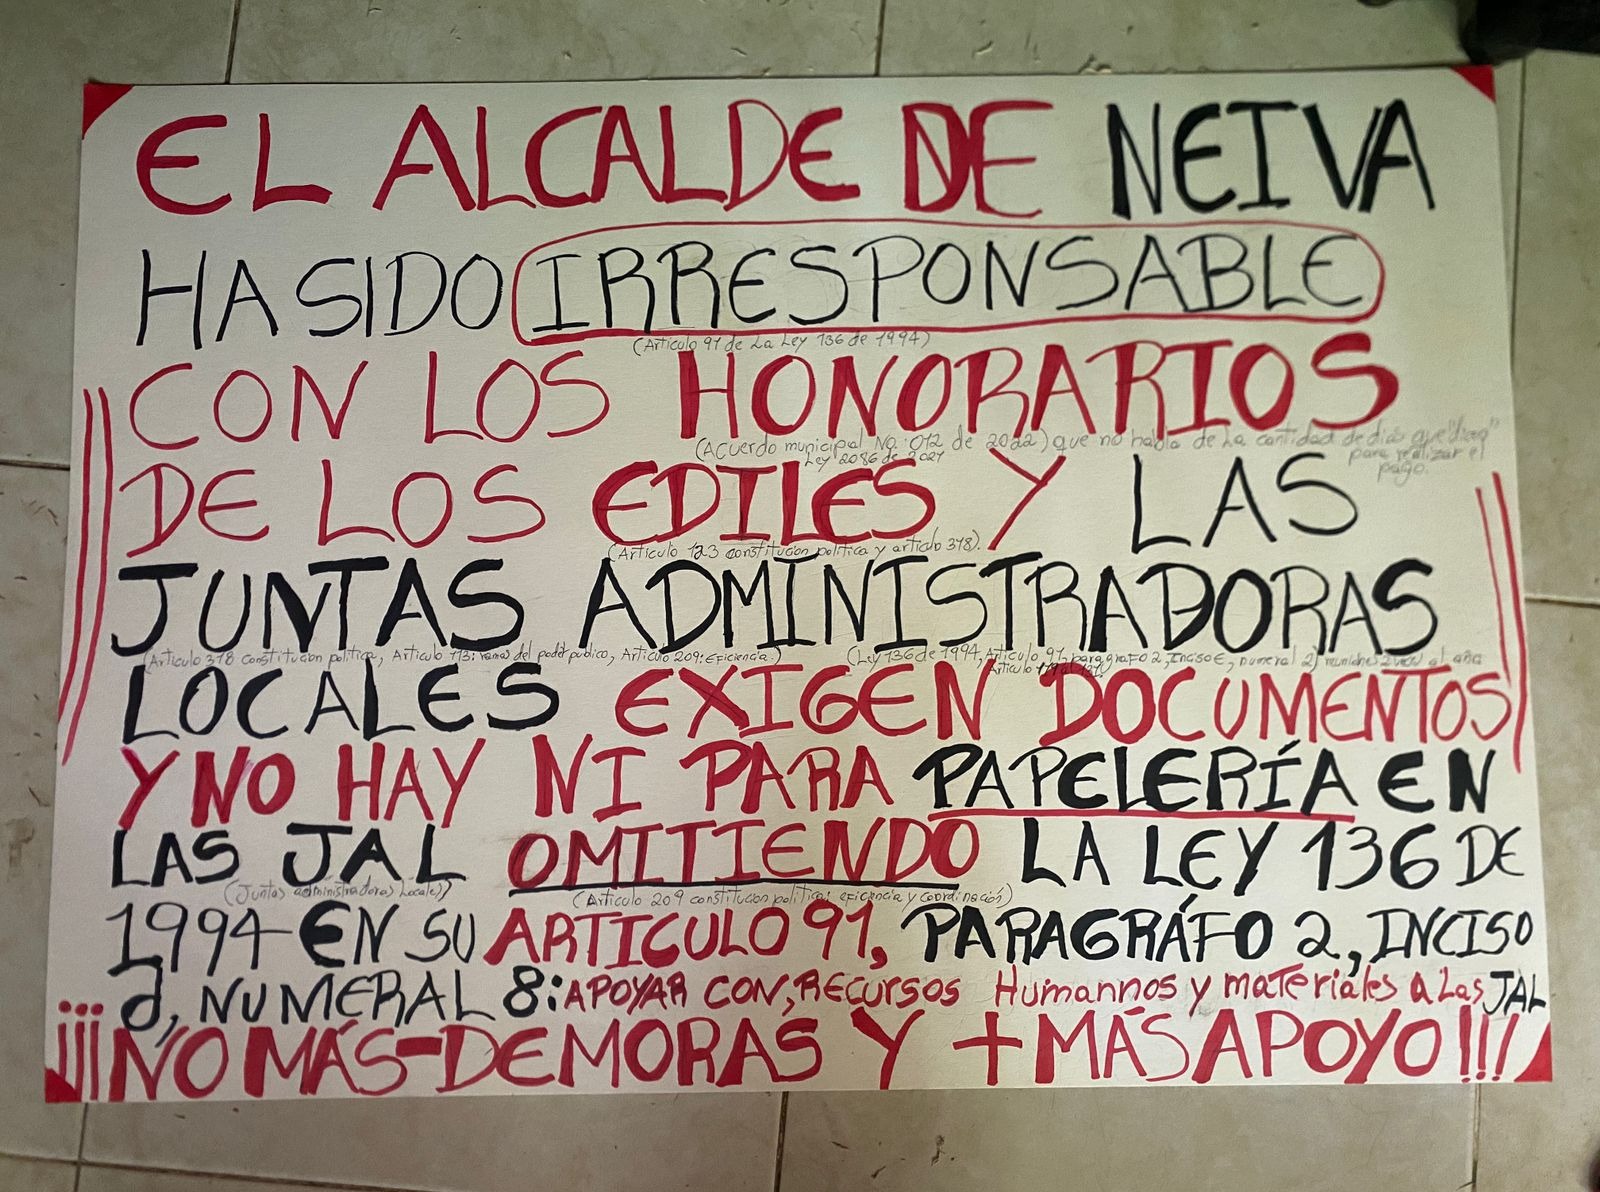 EL ALCALDE DE NEIVA
HA SIDO IRRESPONSABLE
(Artículo 91 de La Ley 136 de 1994)
CON LOS HONORARIOS
(Acuerdo municipal No: 012 de 2022) que no habla de la cantidad de días que "digan"
Ley 2086 de 2021
para realizar el
pago.
DE LOS EDILES Y LAS
(Artículo 123 constitución política y artículo 318).
JUNTAS ADMINISTRADORAS
(Artículo 318 constitución política, Artículo 113: ramas del poder público, Artículo 209: Eficiencia.)
(Ley 136 de 1994, Artículo 91, paragrafo 2, Inciso E, numeral 2) al año
LOCALES EXIGEN DOCUMENTOS
Y NO HAY NI PARA PAPELERÍA EN
LAS JAL OMITIENDO LA LEY 136 DE
(Juntas administradoras Locales)
(Artículo 209 constitución política: eficiencia y coordinación)
1994 EN SU ARTICULO 91, PARAGRÁFO 2, INCISO
d, NUMERAL 8: APOYAR CON, RECURSOS Humannos y materiales a Las JAL
¡¡¡NO MÁS-DEMORAS Y + MÁS APOYO!!!